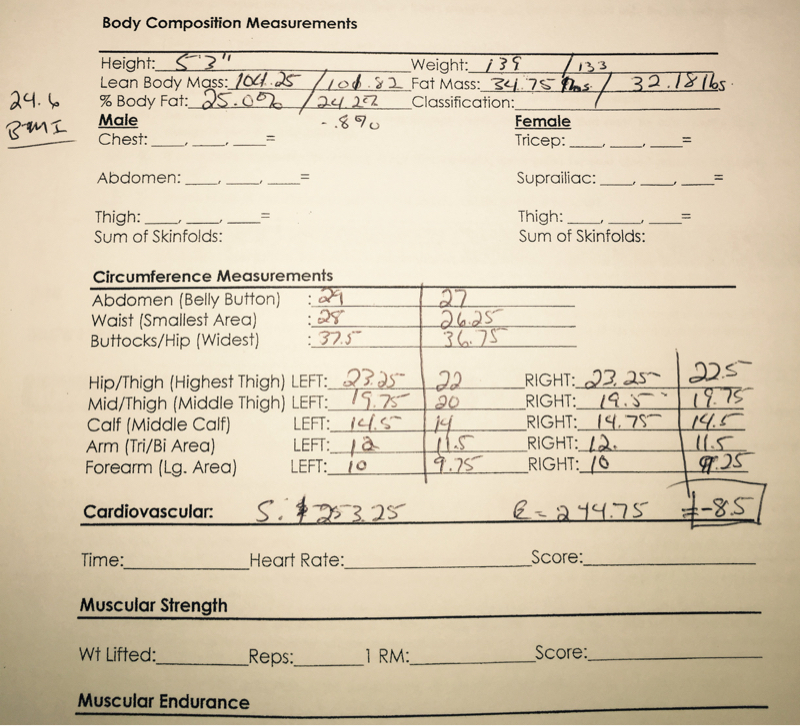 Body Composition Measurements
Height: 5'3" Weight: 139 / 133
Lean Body Mass: 104.25 / 100.82 Fat Mass: 34.75 lbs / 32.18 lbs.
24.6 % Body Fat: 25.0% / 24.2% Classification:
BMI Male - .8% Female
Chest: ___, ___, ___= Tricep: ___, ___, ___=
Abdomen: ___, ___, ___= Suprailiac: ___, ___, ___=
Thigh: ___, ___, ___= Thigh: ___, ___, ___=
Sum of Skinfolds: Sum of Skinfolds:
Circumference Measurements
Abdomen (Belly Button) : 29 27
Waist (Smallest Area) : 28 26.25
Buttocks/Hip (Widest) : 37.5 36.75
Hip/Thigh (Highest Thigh) LEFT: 23.25 22 RIGHT: 23.25 22.5
Mid/Thigh (Middle Thigh) LEFT: 19.75 20 RIGHT: 19.5 19.75
Calf (Middle Calf) LEFT: 14.5 14 RIGHT: 14.75 14.5
Arm (Tri/Bi Area) LEFT: 12 11.5 RIGHT: 12. 11.5
Forearm (Lg. Area) LEFT: 10 9.75 RIGHT: 10 9.25
Cardiovascular: S. 253.25 E = 244.75 = -8.5
Time: Heart Rate: Score:
Muscular Strength
Wt Lifted: Reps: 1 RM: Score:
Muscular Endurance